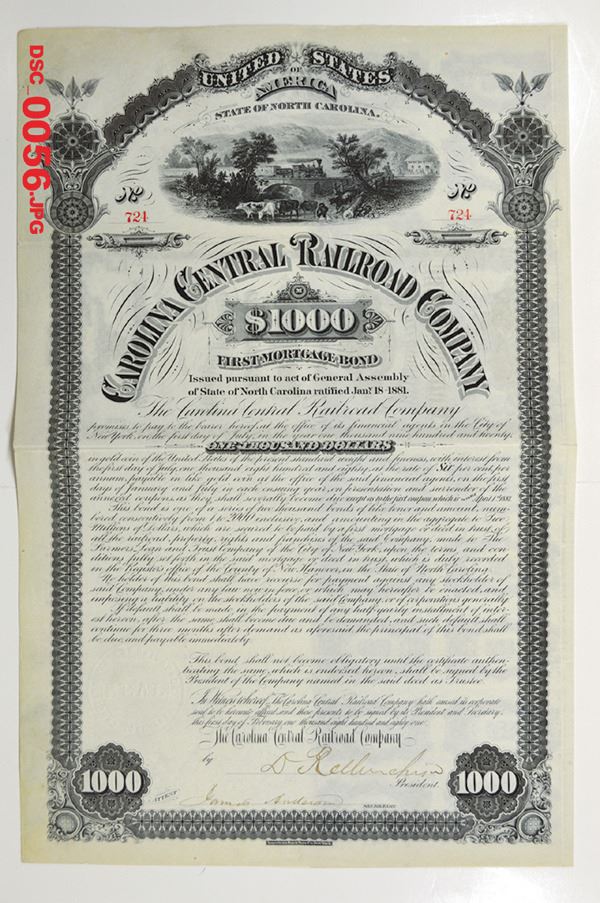 DSC_0056.JPG
UNITED STATES
OF
AMERICA
STATE OF NORTH CAROLINA.
No 724
No 724
CAROLINA CENTRAL RAILROAD COMPANY
$1000
FIRST MORTGAGE BOND
Issued pursuant to act of General Assembly
of State of North Carolina ratified Jany. 18 1881.
The Carolina Central Railroad Company
promises to pay to the bearer hereof, at the office of its financial agents in the City of
New York, on the first day of July, in the year one thousand nine hundred and twenty,
ONE THOUSAND DOLLARS
in gold coin of the United States of of standard weight and fineness, with interest from
the first day of July, one thousand eight hundred and eighty, at the rate of Six per cent per
annum, payable in like gold coin at the office of the said financial agents, on the first
days of January and July in each ensuing year, on presentation and surrender of the
annexed coupons, as they shall severally become due, except as to the first coupon, which is April 1st 1881.
This bond is one of a series of two thousand bonds of like tenor and amount, num-
bered consecutively from 1 to 2000 inclusive, and amounting in the aggregate to Two
Millions of Dollars, which is secured to be paid by a first mortgage or deed in trust, of
all the railroad property, rights and franchises of the said Company, made to The
Farmers' Loan and Trust Company of the City of New York, upon the terms and con-
ditions fully set forth in the said mortgage or deed in trust, which is duly recorded
in the Register's office of the County of New Hanover, in the State of North Carolina.
No holder of this bond shall have recourse for payment against any stockholder of
said Company, under any law now in force, or which may hereafter be enacted, and
imposing a liability on the stockholders of the said Company, or of corporations generally.
If default shall be made in the payment of any half-yearly installment of inter-
est hereon, after the same shall become due and be demanded, and such default shall
continue for three months after demand as aforesaid the principal of this bond shall
be due and payable immediately.
This bond shall not become obligatory until the certificate authen-
ticating the same, which is endorsed hereon, shall be signed by the
President of the Company named in the said deed as Trustee.
In Witness whereof, The Carolina Central Railroad Company hath caused its corporate
seal to be hereunto affixed and these presents to be signed by its President and Secretary,
this first day of February, one thousand eight hundred and eighty one.
The Carolina Central Railroad Company
by
President.
ATTEST James Anderson SECRETARY
1000
1000